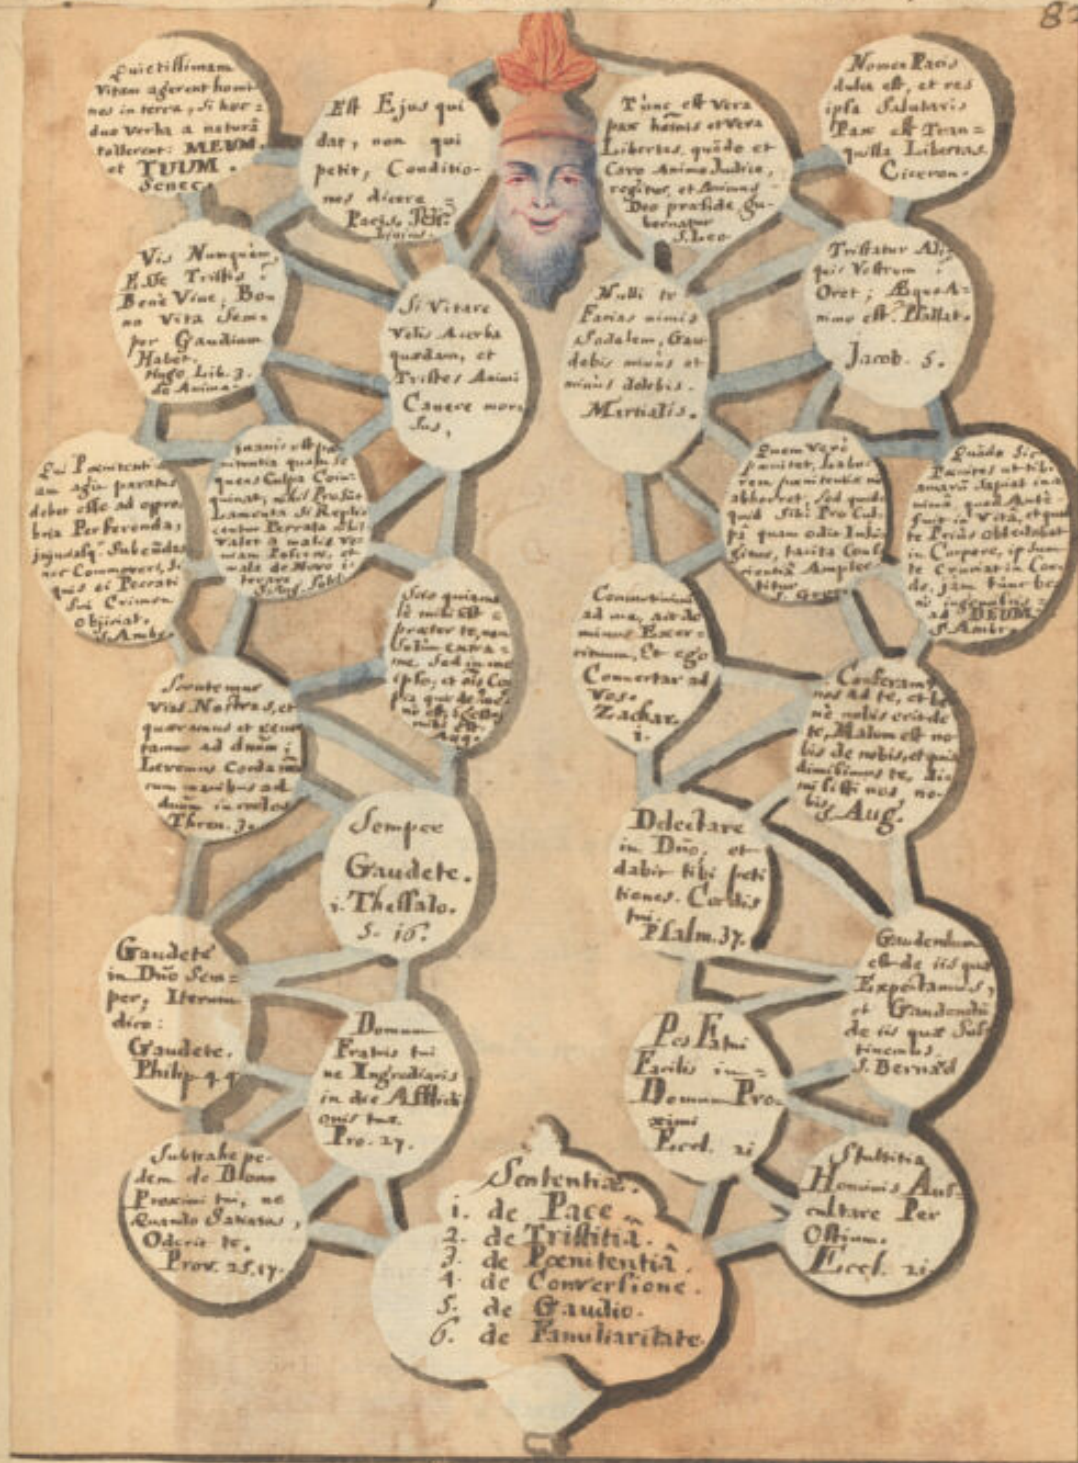 Quietissimam
Vitam agerent homi-
nes in terra, Si hoec
duo verba a naturâ
tollerent: MEUM.
et TUUM.
Senec.
Est Ejus qui
dat, non qui
petit, Conditio-
nes dicere
Pacis.
Tunc est vera
pax hominis et vera
Libertas, quãdo et
Caro Animo Judice,
regitur, et Animus
Deo praeside gu-
bernatur
S. Leo
Nomen Pacis
dulce est, et res
ipsa Salutaris
Pax est Tran=
quilla Libertas.
Ciceron.
Vis Nunquam,
Esse Tristis?
Benè Vive, Bo-
na Vita Sem-
per Gaudium
Habet.
Hugo Lib. 3.
de Anima.
Si Vitare
Velis Acerba
quædam, et
Tristes Animi
Cavere mor-
sus,
Nulli te
Facias nimis
Sodalem, Gau-
debis minus et
minùs dolebis.
Martialis.
Tristatur Ali-
quis Vestrum?
Oret; Æquo A-
nimo est? Psallat.
Jacob. 5.
Qui Pœnitenti-
am agit paratus
debet esse ad oppro-
bria Perferenda,
injuriasq Subeũdas
nec Commoveri, Si
quis ei Peccati
Sui Crimen
Objiciat.
S. Amb.
Inanis est pœ-
nitentia quam se-
quens Culpa Coin-
quinat, nihil Prosũt
Lamenta Si Repli-
centur Peccata
Valet a malis ve-
niam Poscere, et
mala de Novo i-
terare
Quem Verè
pœnitet, Labo-
rem pœnitentiæ nõ
abhorret, sed quid-
quid Sibi Pro Cul-
pâ quam odit
tacita Cons-
cientiâ Amplec-
titur
S. Greg.
Quãdo Sic
Pœnitet ut tibi
amarũ Sapiat in a-
nimâ, quod Antè
fuit in Vitâ, et quod
te Prius Oblectabat
in Corpore, ipsum
te Cruciat in Cor-
de, jam tunc be-
nè ingemiscis
ad DEUM.
S. Ambr.
præter te, non
Solùm extra
me Sed in me
ipso, et ois Co-
pia quæ
Aug.
Convertimini
ad me, ait do-
minus Exer-
cituum, Et ego
Convertar ad
Vos.
Zachar.
i.
Scrutemur
Vias Nostras, et
quæramus et rever
tamur ad dnum;
Levemus Corda
cum manibus ad
dnum in cœlos
Thren. 3.
Conferamus
nos ad te, et be-
nè nobis erit de
te, Malum est no-
bis de nobis, et quia
dimisimus te, di-
misisti nos no-
bis
S. Aug.
Semper
Gaudete.
i. Thessalo.
5. 16.
Delectare
in Dño, et
dabit tibi peti
tiones. Cordis
tui.
Psalm. 37.
Gaudete
in Dño Sem=
per, Iterum
dico:
Gaudete.
Philip. 4. 4.
Gaudendum
est de iis quæ
Expectamus,
et Gaudendũ
de iis quæ Sus
tinemus.
S. Bernãd
Domum
Fratris tui
ne Ingrediaris
in die Afflicti
onis tuæ.
Pro. 27.
Pes Fatui
Facilis in=
Domum Pro-
ximi
Eccl. 21
Subtrahe pe-
dem de Domo
Proximi tui, ne
Quando Satiatus,
Oderit te.
Prov. 25. 17.
Stultitia
Hominis Aus-
cultare Per
Ostium.
Eccl. 21.
Sententiæ.
1. de Pace
2. de Tristitiâ.
3. de Pœnitentiâ.
4. de Conversione.
5. de Gaudio.
6. de Familiaritate.